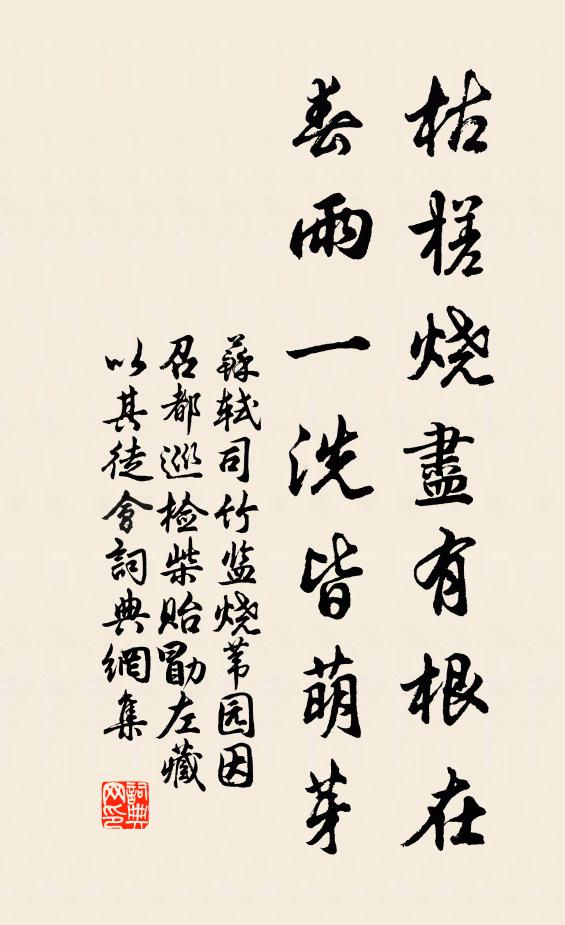 枯槎烧盡有根在
春雨一洗皆萌芽
蘇轼司竹监烧苇园因
召都巡检柴贻勖左藏
以其徒會詞典網集
詞典网印